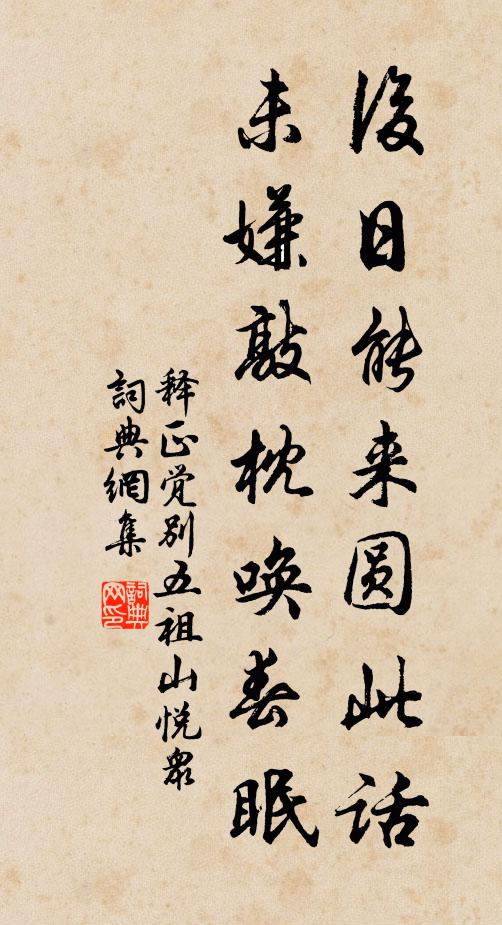 後日能来圆此话
未嫌敲枕唤春眠
释正觉别五祖山悦众
詞典網集
詞典網印